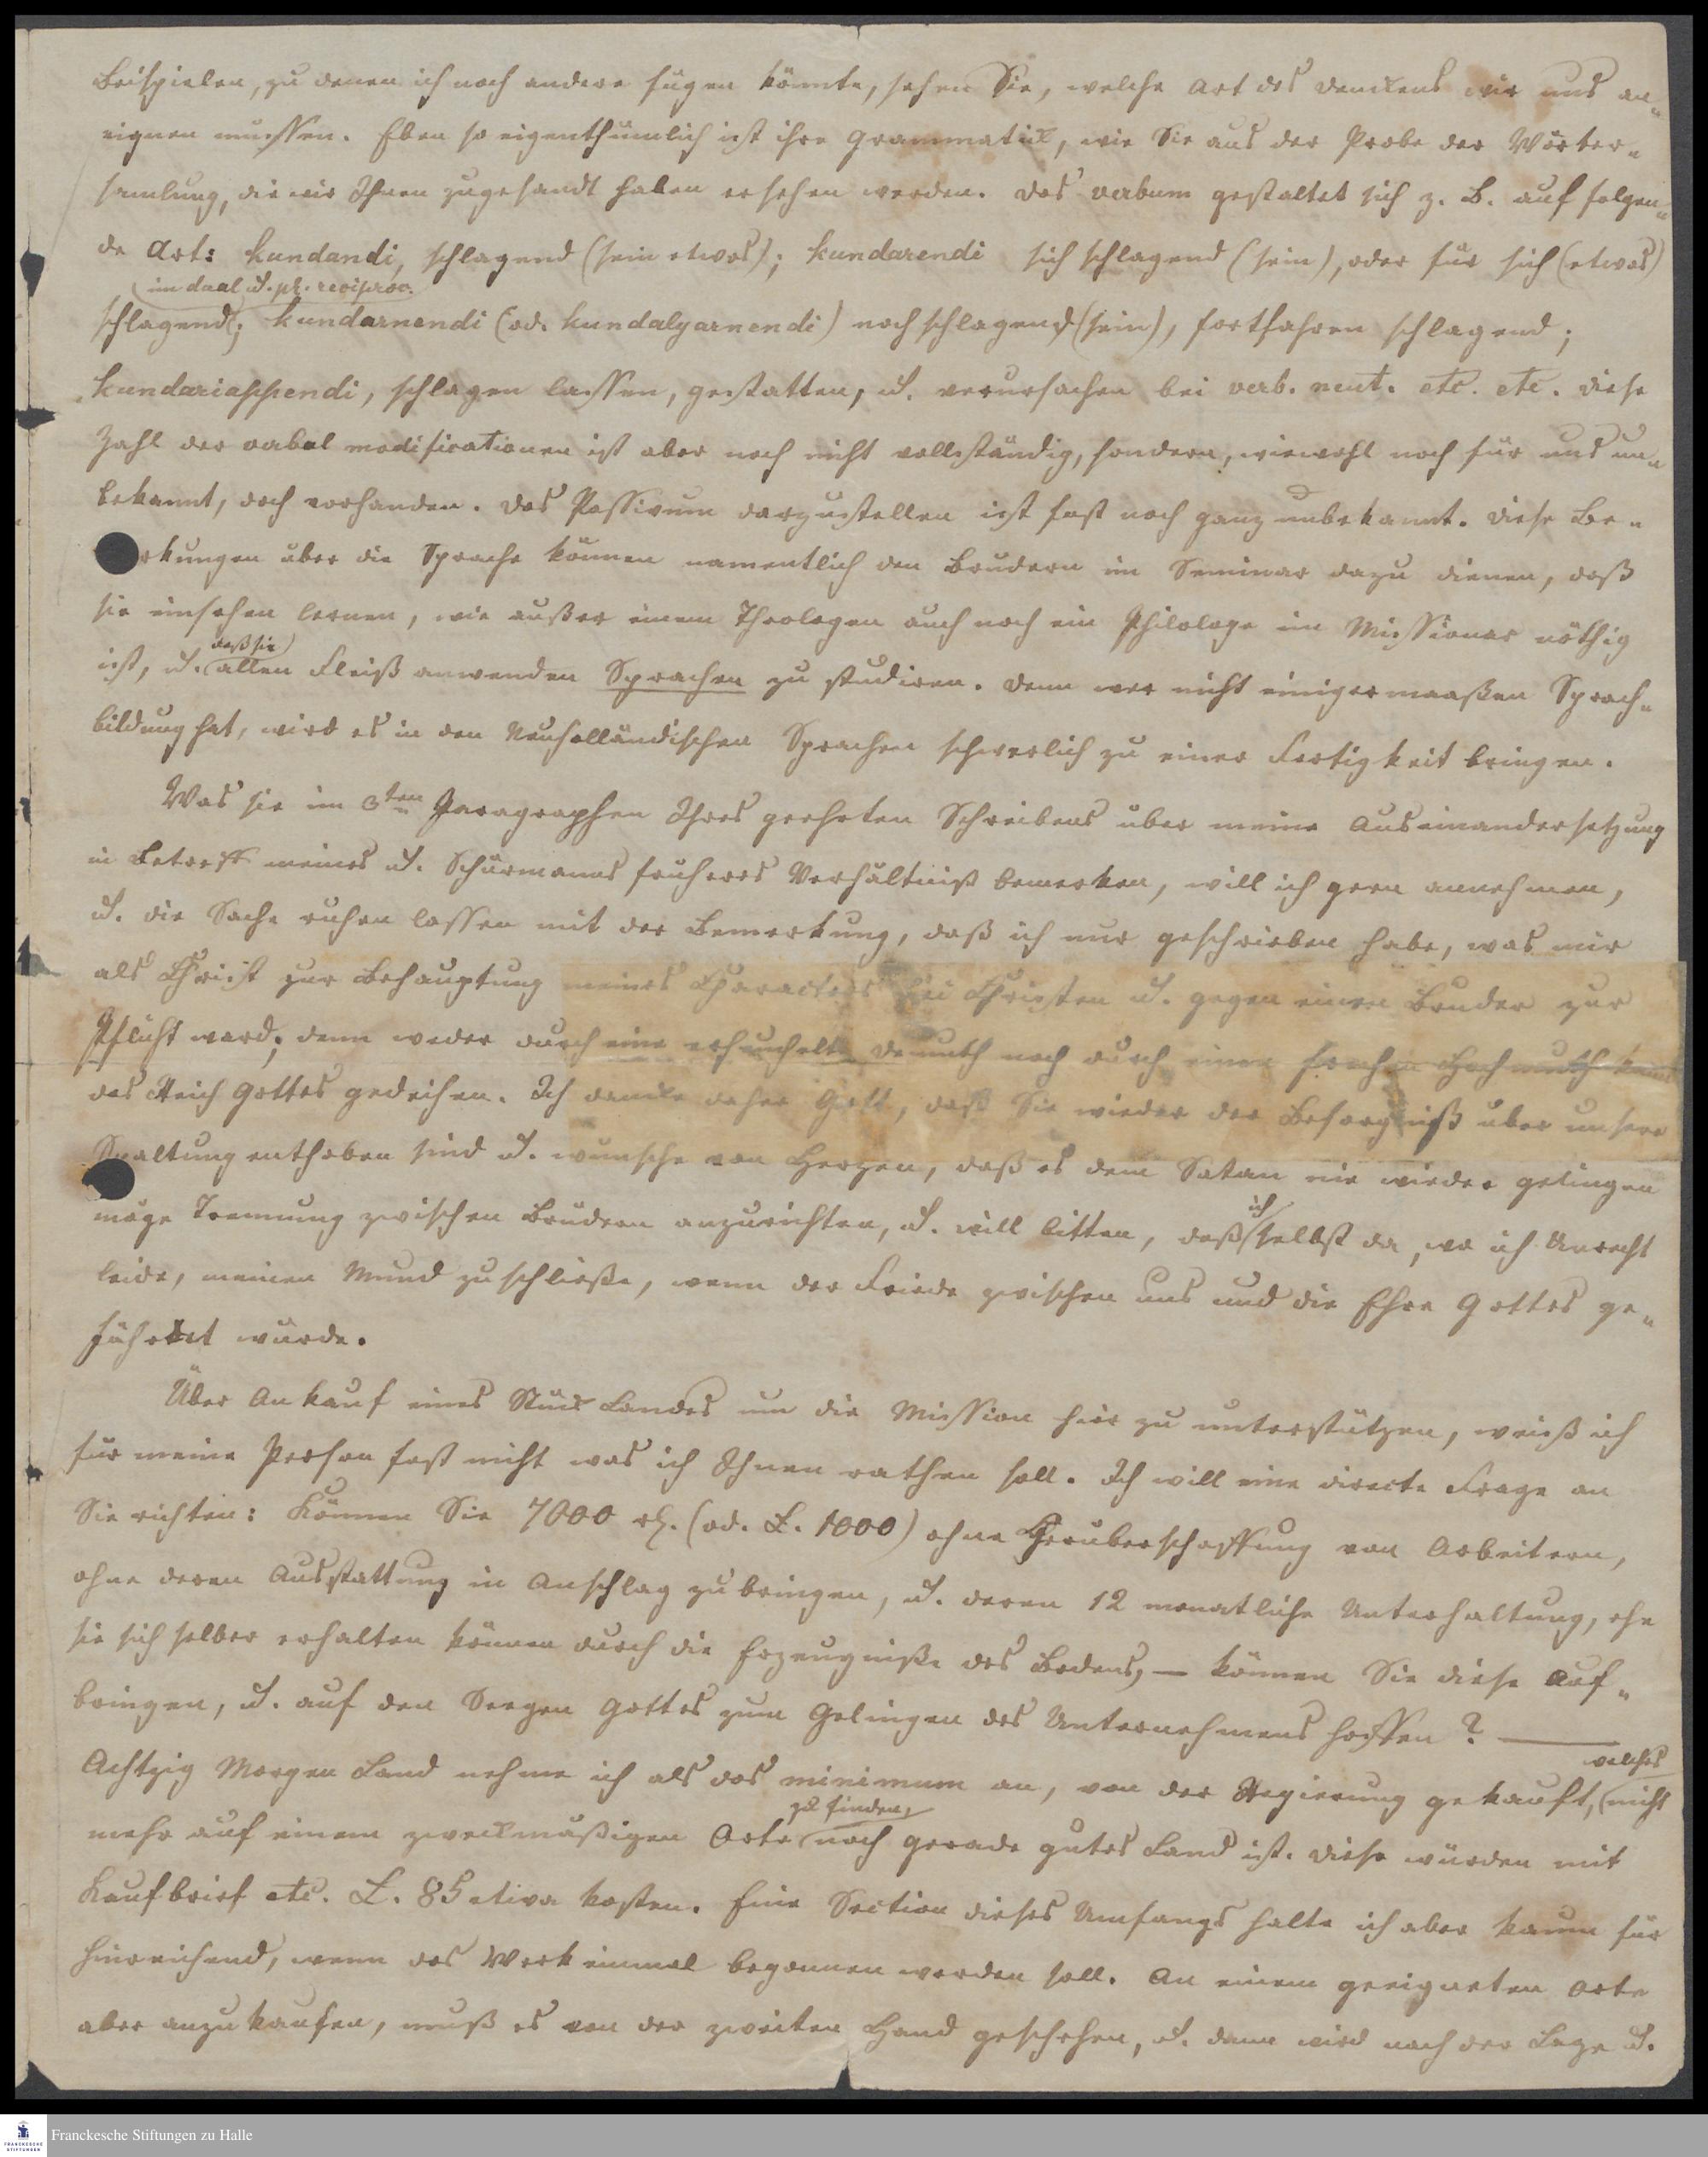 Beispielen, zu denen ich noch andere fügen könnte, sehen Sie, welche Art des Denckens wir uns an-
eignen müssen. Eben so eigenthümlich ist ihre Grammatick, wie Sie aus der Probe der Wörter-
samlung, die wir Ihnen zugesandt haben ersehen werden. Das verbum gestaltet sich z. B. auf folgen-
de Art: kundandi, schlagend (sein etwas); kundarendi sich schlagend (sein), oder für sich (etwas)
im dual u. pl. reciproc.
schlagend; kundarnendi (od. kundalyarnendi) noch schlagend (sein), fortfahren schlagend;
kundariappendi, schlagen lassen, gestatten, u. verursachen bei verb. neut. etc. etc. Diese
Zahl der verbal modificationen ist aber noch nicht vollständig, sondern, wiewohl noch für uns un-
bekannt, doch vorhanden. Das Passivum darzustellen ist fast noch ganz unbekannt. Diese Be-
rkungen über die Sprache können namentlich den Brüdern im Seminar dazu dienen, daß
sie einsehen lernen, wie außer einem Theologen auch noch ein Philologe im Missionar nöthig
daß sie
ist, u. allen Fleiß anwenden Sprachen zu studiren. Denn wer nicht einigermaaßen Sprach-
bildung hat, wird es in den Neuholländischen Sprachen schwerlich zu einer Fertigkeit bringen.
Was sie im 3ten Paragraphen Ihres geehrten Schreibens über meine Auseinandersetzung
in Betreff meines u. Schürmanns früheres Verhältniß bemerken, will ich gern annehmen,
u. die Sache ruhen lassen mit der Bemerkung, daß ich nur geschrieben habe, was mir
als Christ zur Behauptung meines Characters bei Christen u. gegen einen Bruder zur
Pflicht ward; denn weder durch eine erheuchelte Demuth noch durch einen frechen Hochmuth kann
das Reich Gottes gedeihen. Ich dancke daher Gott, daß Sie wieder der Besorgniß über unsere
Spaltung enthoben sind u. wünsche von Herzen, daß es dem Satan nie wieder gelingen
ich
möge Trennung zwischen Brüdern anzurichten, u. will bitten, daß selbst da, wo ich Unrecht
leide, meinen Mund zu schließe, wenn der Friede zwischen uns und die Ehre Gottes ge-
fährdet würde.
Über Ankauf eines Stück Landes um die Mission hier zu unterstützen, weiß ich
für meine Person fast nicht was ich Ihnen rathen soll. Ich will eine directe Frage an
Sie richten: Können Sie 7000 rh. (od. £. 1000) ohne Herüberschaffung von Arbeitern,
ohne deren Ausstattung in Anschlag zu bringen, u. deren 12 monatliche Unterhaltung, ehe
sie sich selber erhalten können durch die Erzeugniße des Bodens, — können Sie diese auf-
bringen, u. auf den Seegen Gottes zum Gelingen des Unternehmens hoffen? —
welches
Achtzig Morgen Land nehme ich als das minimum an, von der Regierung gekauft, nicht
zu finden,
mehr auf einem zweckmäßigen Orte noch gerade gutes Land ist. Diese würden mit
Kaufbrief etc. £. 85 etwa kosten. Eine Section dieses Umfangs halte ich aber kaum für
hinreichend, wenn das Werk einmal begonnen werden soll. An einem geeigneten Orte
aber anzukaufen, muß es von der zweiten Hand geschehen, u. dann wird nach der Lage u.
Franckesche Stiftungen zu Halle
FRANCKESCHE
STIFTUNGEN